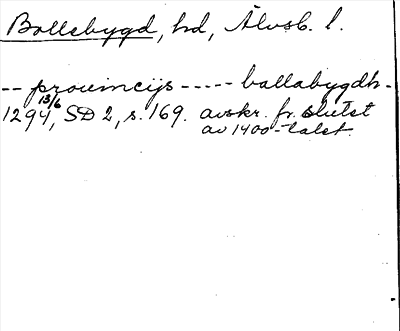 Bollebygd, hd, Älvsb. l.
-- prouincijs ----- ballabygdh -
1294 13/6, SD 2, s. 169. avskr. fr. slutet
av 1400-talet